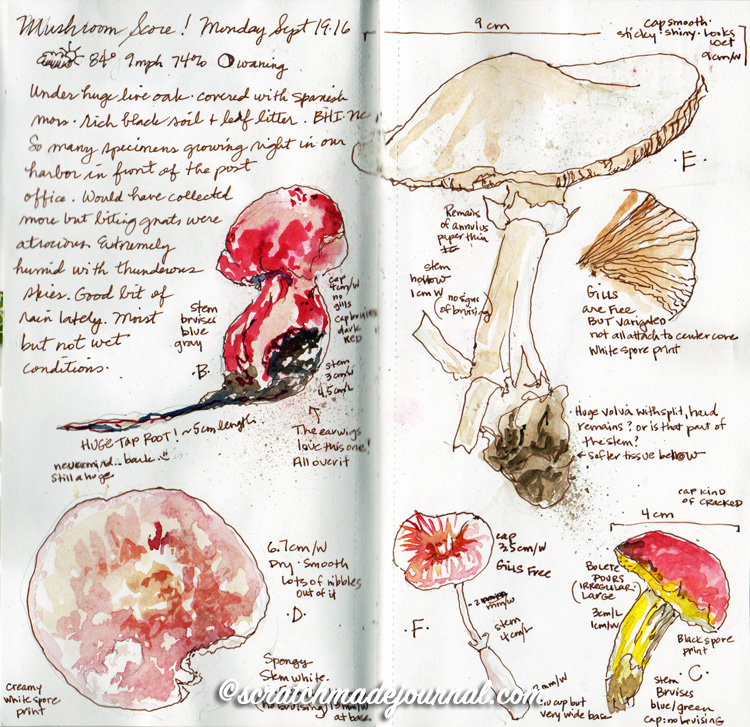 Mushroom Score! Monday Sept 19.16
84° 9mph 74% waning
Under huge live oak. covered with Spanish
moss. rich black soil + leaf litter. BHI. NC
So many specimens growing right in our
harbor in front of the post
office. Would have collected
more but biting gnats were
atrocious. Extremely
humid with thunderous
skies. Good bit of
rain lately. Moist
but not wet
conditions.
stem
bruises
blue
gray
·B·
cap
4cm/W
no
gills
cap bruises
dark
red
stem
3cm/W
4.5cm/L
HUGE TAP ROOT! ~5cm length
nevermind... bark.
Still a huge
The earwigs
love this one!
All over it
6.7cm/W
Dry. Smooth
Lots of nibbles
out of it
·D·
Spongy
Stem white.
no bruising
at base
creamy
white spore
print
9cm
cap smooth.
sticky. shiny. looks
wet
9cm/W
·E·
Remains
of annulus
paper thin
stem
hollow
1cm W
no signs
of bruising
Gills
are Free
BUT varigated
not all attach to center core
White spore print
Huge volva with split, hard
remains? or is that part of
the stem?
softer tissue below
cap
3.5cm/W
Gills Free
·F·
mm/w
stem
4cm/L
no cup but
very wide base
cap kind
of cracked
4cm
BOLETE
POURS
IRREGULAR
LARGE
3cm/L
1cm/W
Black spore
print
C.
stem
Bruises
blue/green
cap: no bruising
©scratchmadejournal.com